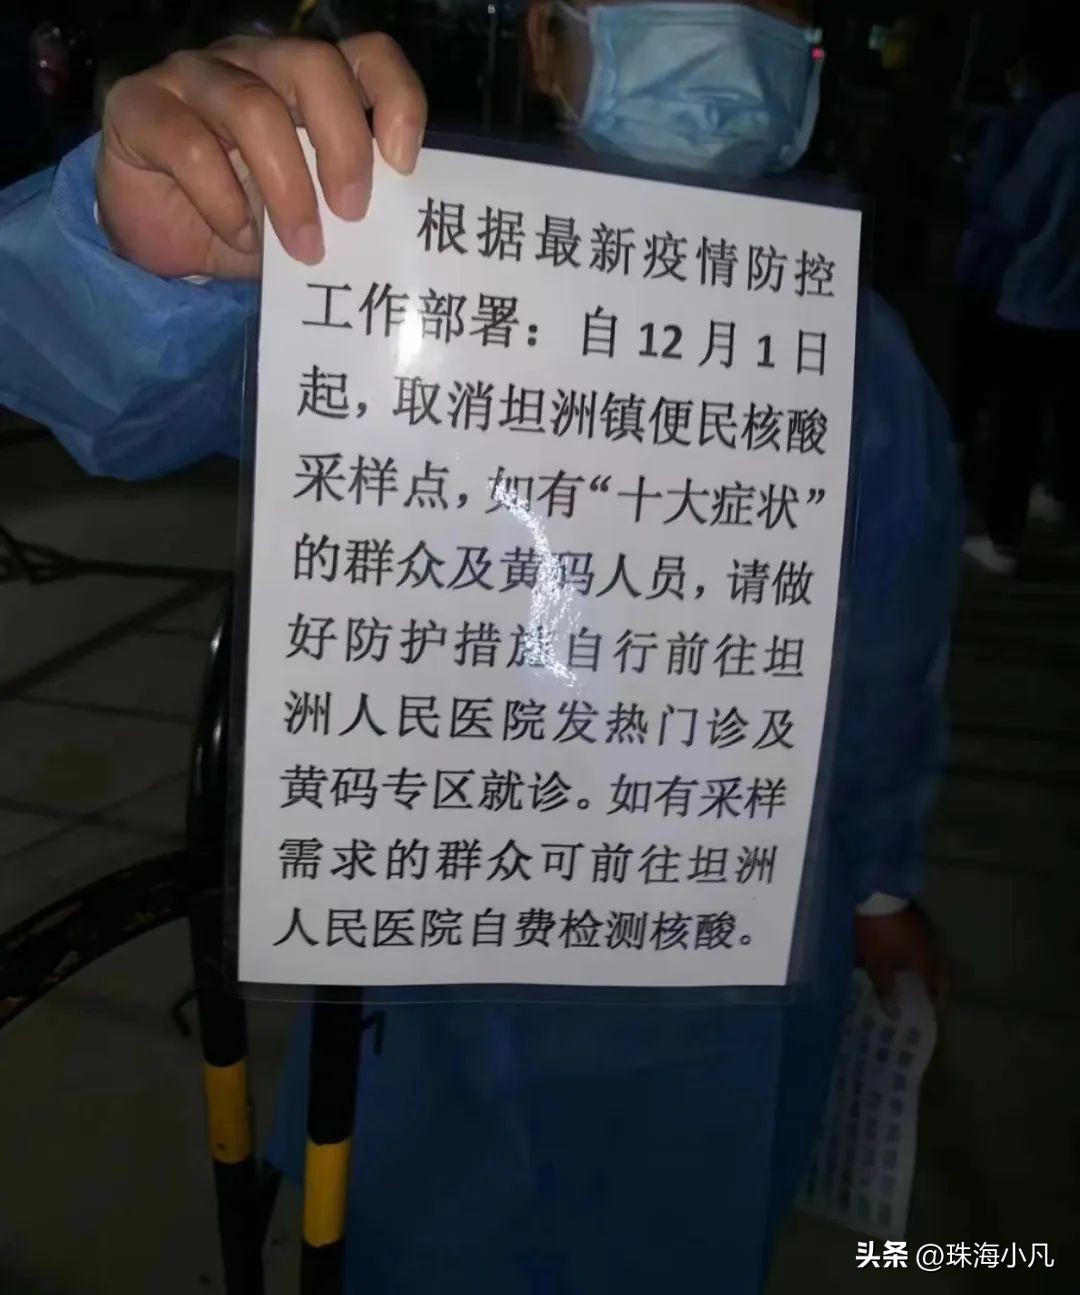 根据最新疫情防控
工作部署：自12月1日
起，取消坦洲镇便民核酸
采样点，如有“十大症状”
的群众及黄码人员，请做
好防护措施自行前往坦
洲人民医院发热门诊及
黄码专区就诊。如有采样
需求的群众可前往坦洲
人民医院自费检测核酸。
头条 @珠海小凡